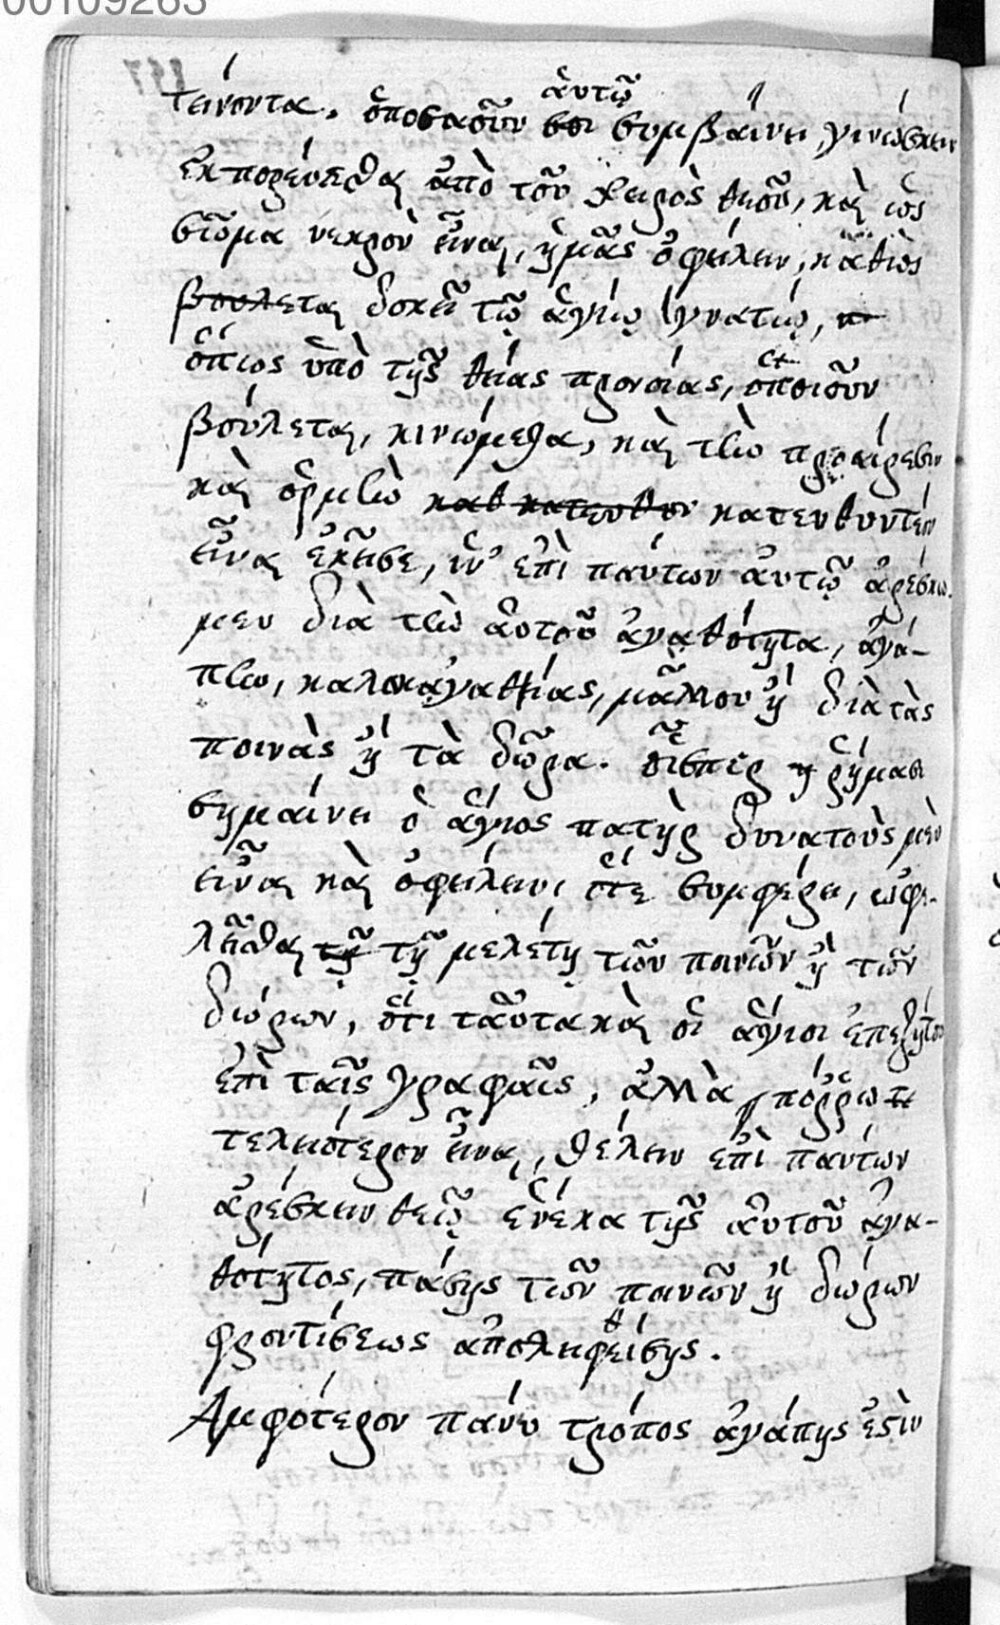 00109263
τείνοντα, ὁποσαοῦν αὐτῷ συμβαίνει, γινώσκειν
ἐκπορεύεσθαι ἀπὸ τοῦ χειρὸς θεοῦ, καὶ ὡς
σῶμα νεκρὸν εἶναι, ἡμᾶς ὀφείλειν, καθὼς
βουλεται δοκεῖ τῷ ἁγίῳ Ιγνατίῳ,
ὅπως ὑπὸ τῆς θείας προνοίας,
βούλεται, κινώμεθα, καὶ τὴν προαίρεσιν
καὶ ὁρμὴν κατευθυντέον
εἶναι ἐκεῖσε, ἵν' ἐπὶ πάντων αὐτῷ ἀρέσκω-
μεν διὰ τὴν αὐτοῦ ἀγαθότητα, ἀγά-
πην, καλοκἀγαθίας, μᾶλλον ἢ διὰ τὰς
ποινὰς ἢ τὰ δῶρα. οἷσπερ ῥήμασι
σημαίνει ὁ ἅγιος πατὴρ δυνατοὺς μὲν
εἶναι καὶ ὀφείλειν, ὅτε συμφέρει, ὠφε-
λεῖσθαι τῇ μελέτῃ τῶν ποινῶν ἢ τῶν
δώρων, ὅτι ταῦτα καὶ οἱ ἅγιοι ἐπεζήτουν
ἐπὶ ταῖς γραφαῖς, ἀλλὰ πόῤῥω
τελειότερον εἶναι, θέλειν ἐπὶ πάντων
ἀρέσκειν θεῷ ἕνεκα τῆς αὐτοῦ ἀγα-
θότητος, πάσης τῶν ποινῶν ἢ δώρων
φροντίσεως ἀπολειφθείσης.
Αμφότερον πάνυ τρόπος ἀγάπης ἐστὶν